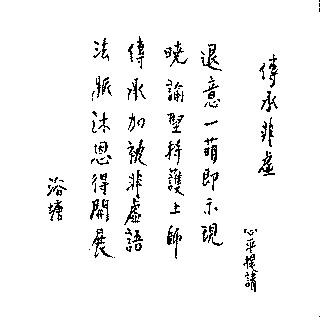 傳承非虛
心平提請
退意一萌即示現
曉諭堅持護上師
傳承加被非虛語
法脈沐恩得開展
浴塘